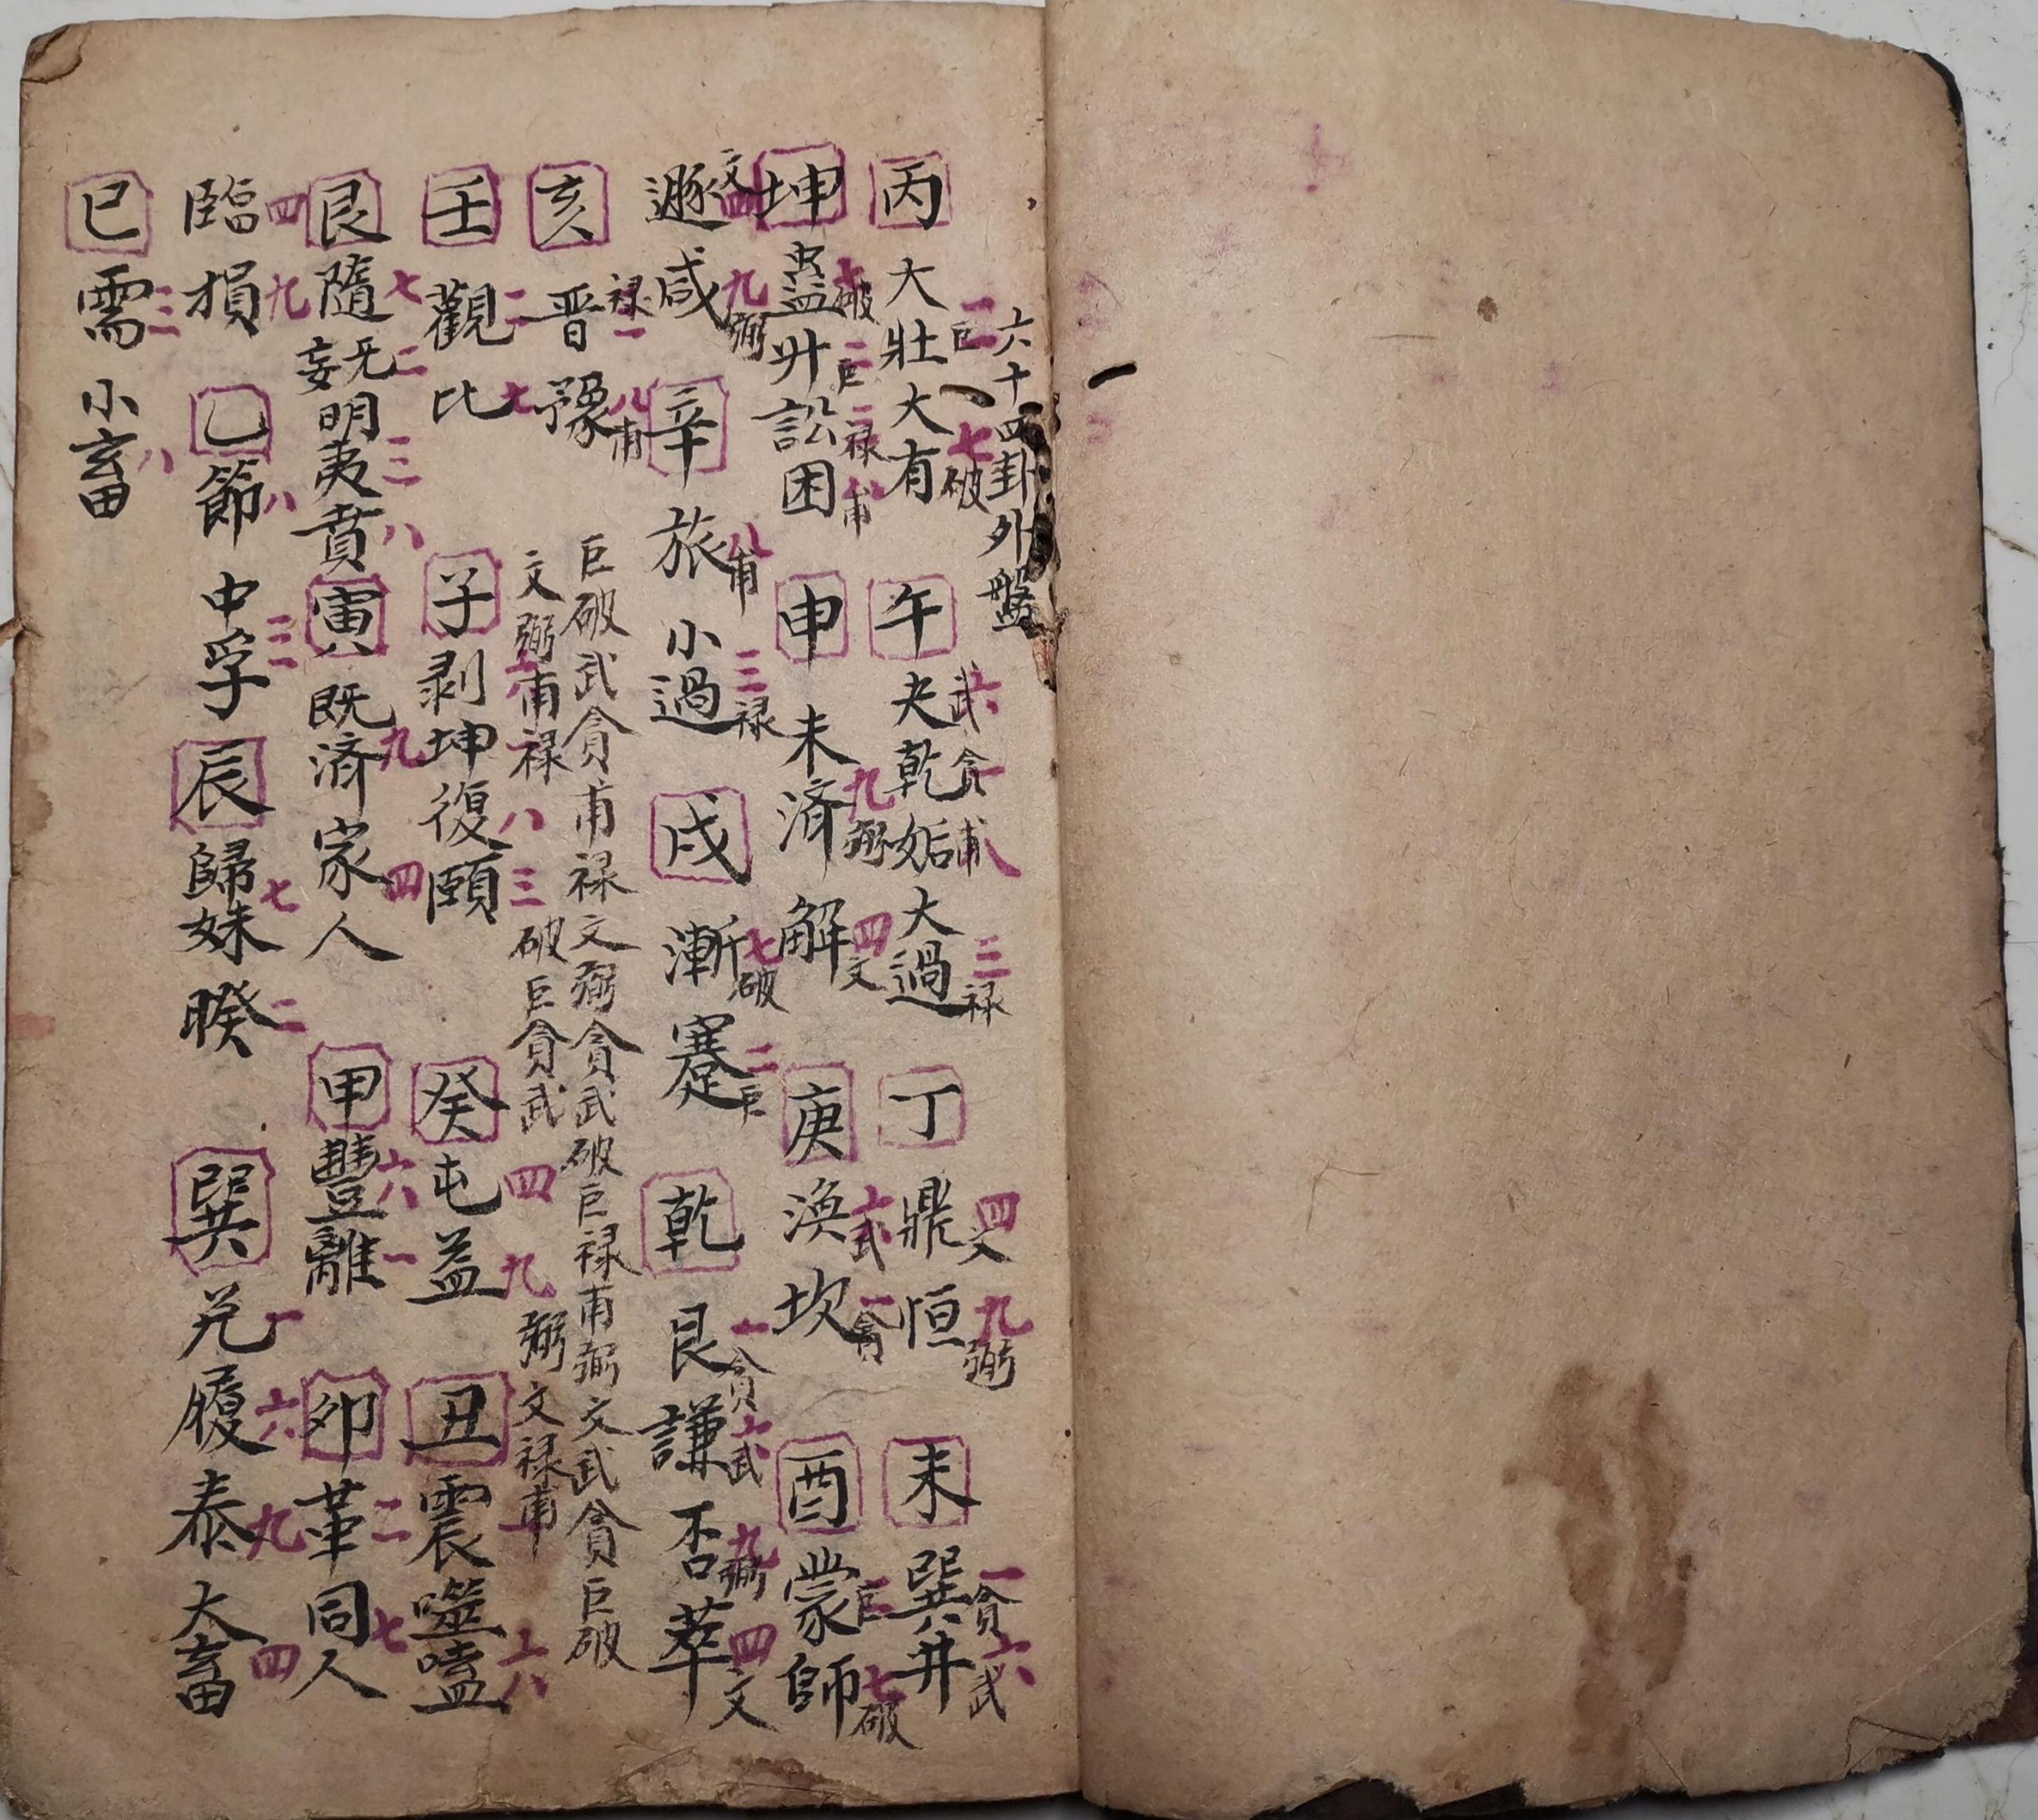 六十四卦外盤
丙 大壯 二巨 大有 七破 午 夬 六武 乾 一貪 姤 八甫 大過 三禄 丁 鼎 四文 恒 九弼 未 巽 一貪 井 六武
坤 蠱 七破 升 二巨 訟 三禄 困 八甫 申 未済 九弼 解 四文 庚 渙 六武 坎 一貪 酉 蒙 二巨 師 七破
遯 四文 咸 九弼 辛 旅 八甫 小過 三禄 戌 漸 七破 蹇 二巨 乾 艮 一貪 謙 六武 否 九弼 萃 四文
亥 晋 禄 豫 八甫
巨破武貪甫禄文弼貪武破巨禄甫弼文武貪巨破
文弼甫禄 破巨貪武 弼文禄甫
壬 觀 二 比 七 子 剥 坤 復 八 頤 三 癸 屯 四 益 九 丑 震 噬嗑 六
艮 隨 七 无妄 二 明夷 三 賁 八 寅 既済 九 家人 四 甲 豐 六 離 一 卯 革 二 同人 七
臨 四 損 九 乙 節 八 中孚 三 辰 歸妹 七 睽 二 巽 兑 一 履 六 泰 九 大畜 四
巳 需 三 小畜 八